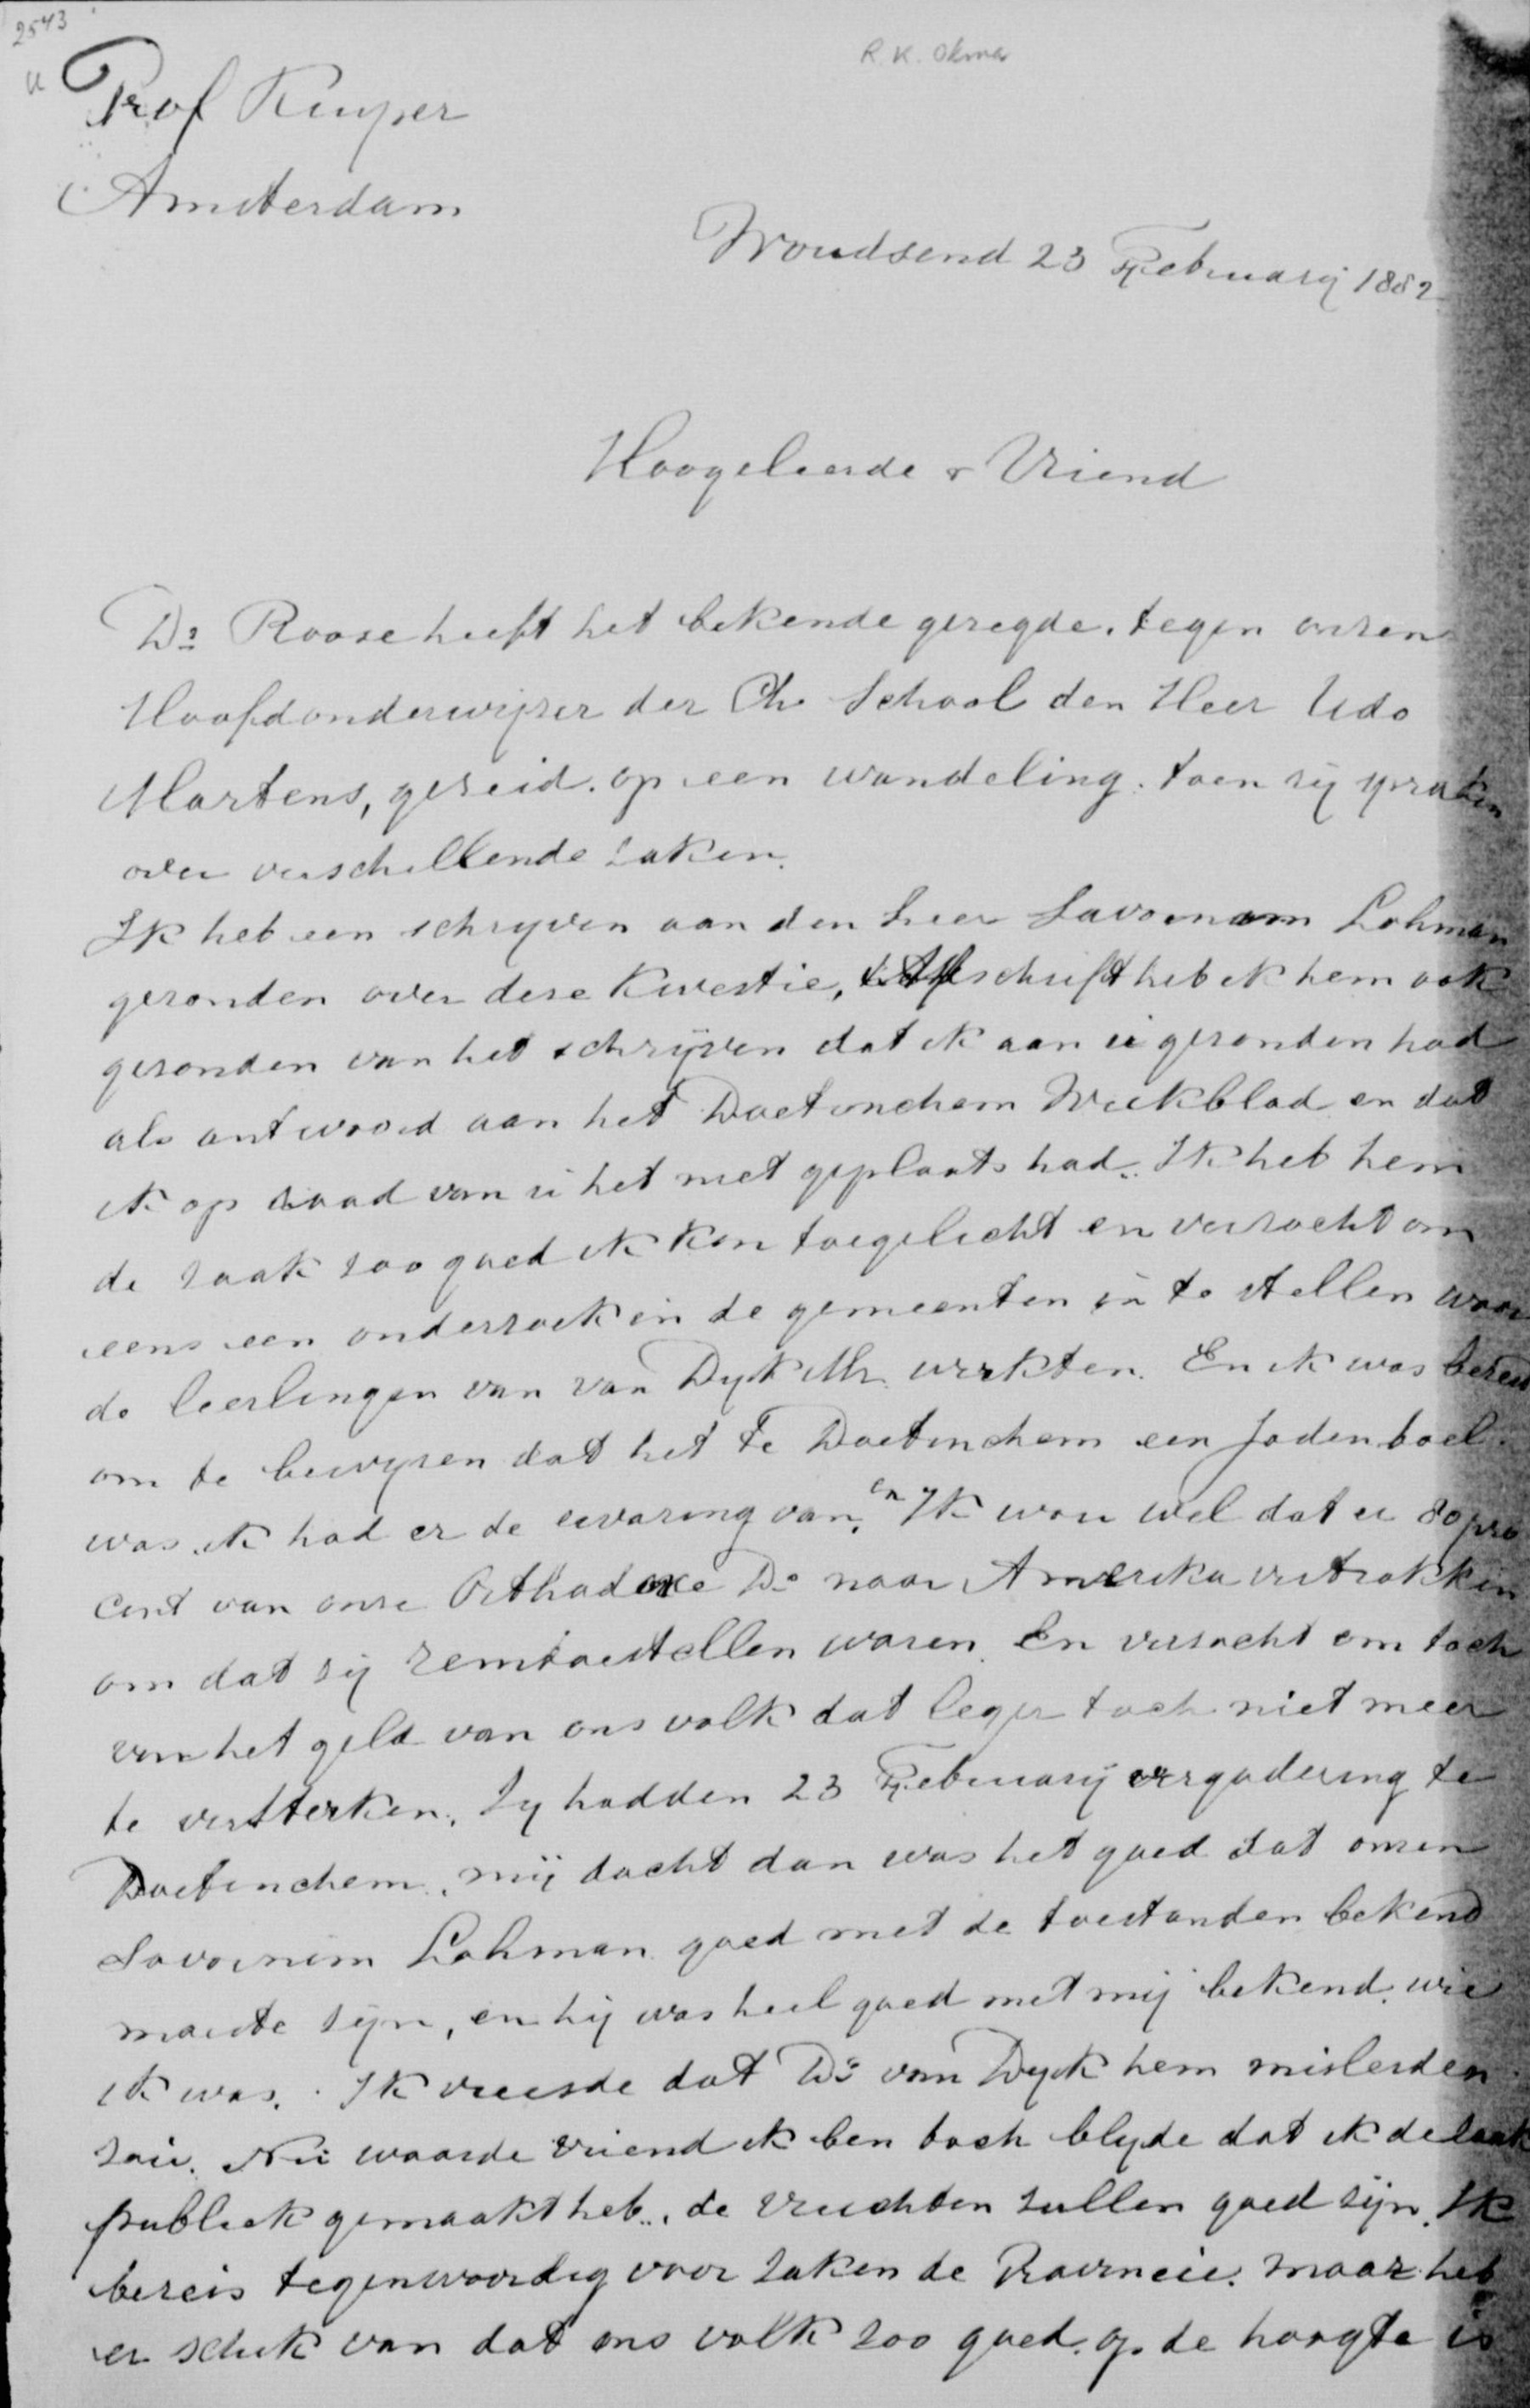 2543
R. K. Okma
Prof Kuyper
Amsterdam
Woudsend 23 February 1882
Hoogeleerde & Vriend
Ds Roose heeft het bekende gezegde. tegen onzen
Hoofdonderwijzer der Ch. School den Heer Udo
Martens, gezeid. op een wandeling. toen zij spraken
over verschillende zaken.
Ik heb een schryven aan den heer Savornam Lohman
gezonden over deze Kwestie, Afschrift heb ik hem ook
gezonden van het schrijven dat ik aan ú gezonden had
als antwoord aan het Doetinchem Weekblad en dat
ik op raad van ú het niet geplaats had. Ik heb hem
de zaak zoo goed ik kon toegelicht en verzocht om
eens een onderzoek in de gemeenten in te stellen waar
de leerlingen van van Dyk Mr. werkten. En ik was bereid
om te bewyzen dat het te Doetinchem een Jodenboel.
was ik had er de ervaring van. en Ik wou wel dat er 80 pro
cent van onze Orthodoxe Ds naar Amerika vertrokken
om dat zij remtoestellen waren. En verzocht om toch
van het geld van ons volk dat leger toch niet meer
te versterken. Zy hadden 23 February vergadering te
Doetinchem. mij dacht dan was het goed dat onzen
Savornim Lohman goed met de toestanden bekend
moeste zijn, en hij was heel goed met mij bekend. wie
ik was. Ik vreesde dat Ds van Dyck hem misleiden
zou. Nú waarde vriend ik ben toch blyde dat ik de zaak
publiek gemaakt heb. de vruchten zullen goed zijn. Ik
bereis tegenwoordig voor zaken de Provincie. maar heb
er schik van dat ons volk zoo goed. op de hoogte is